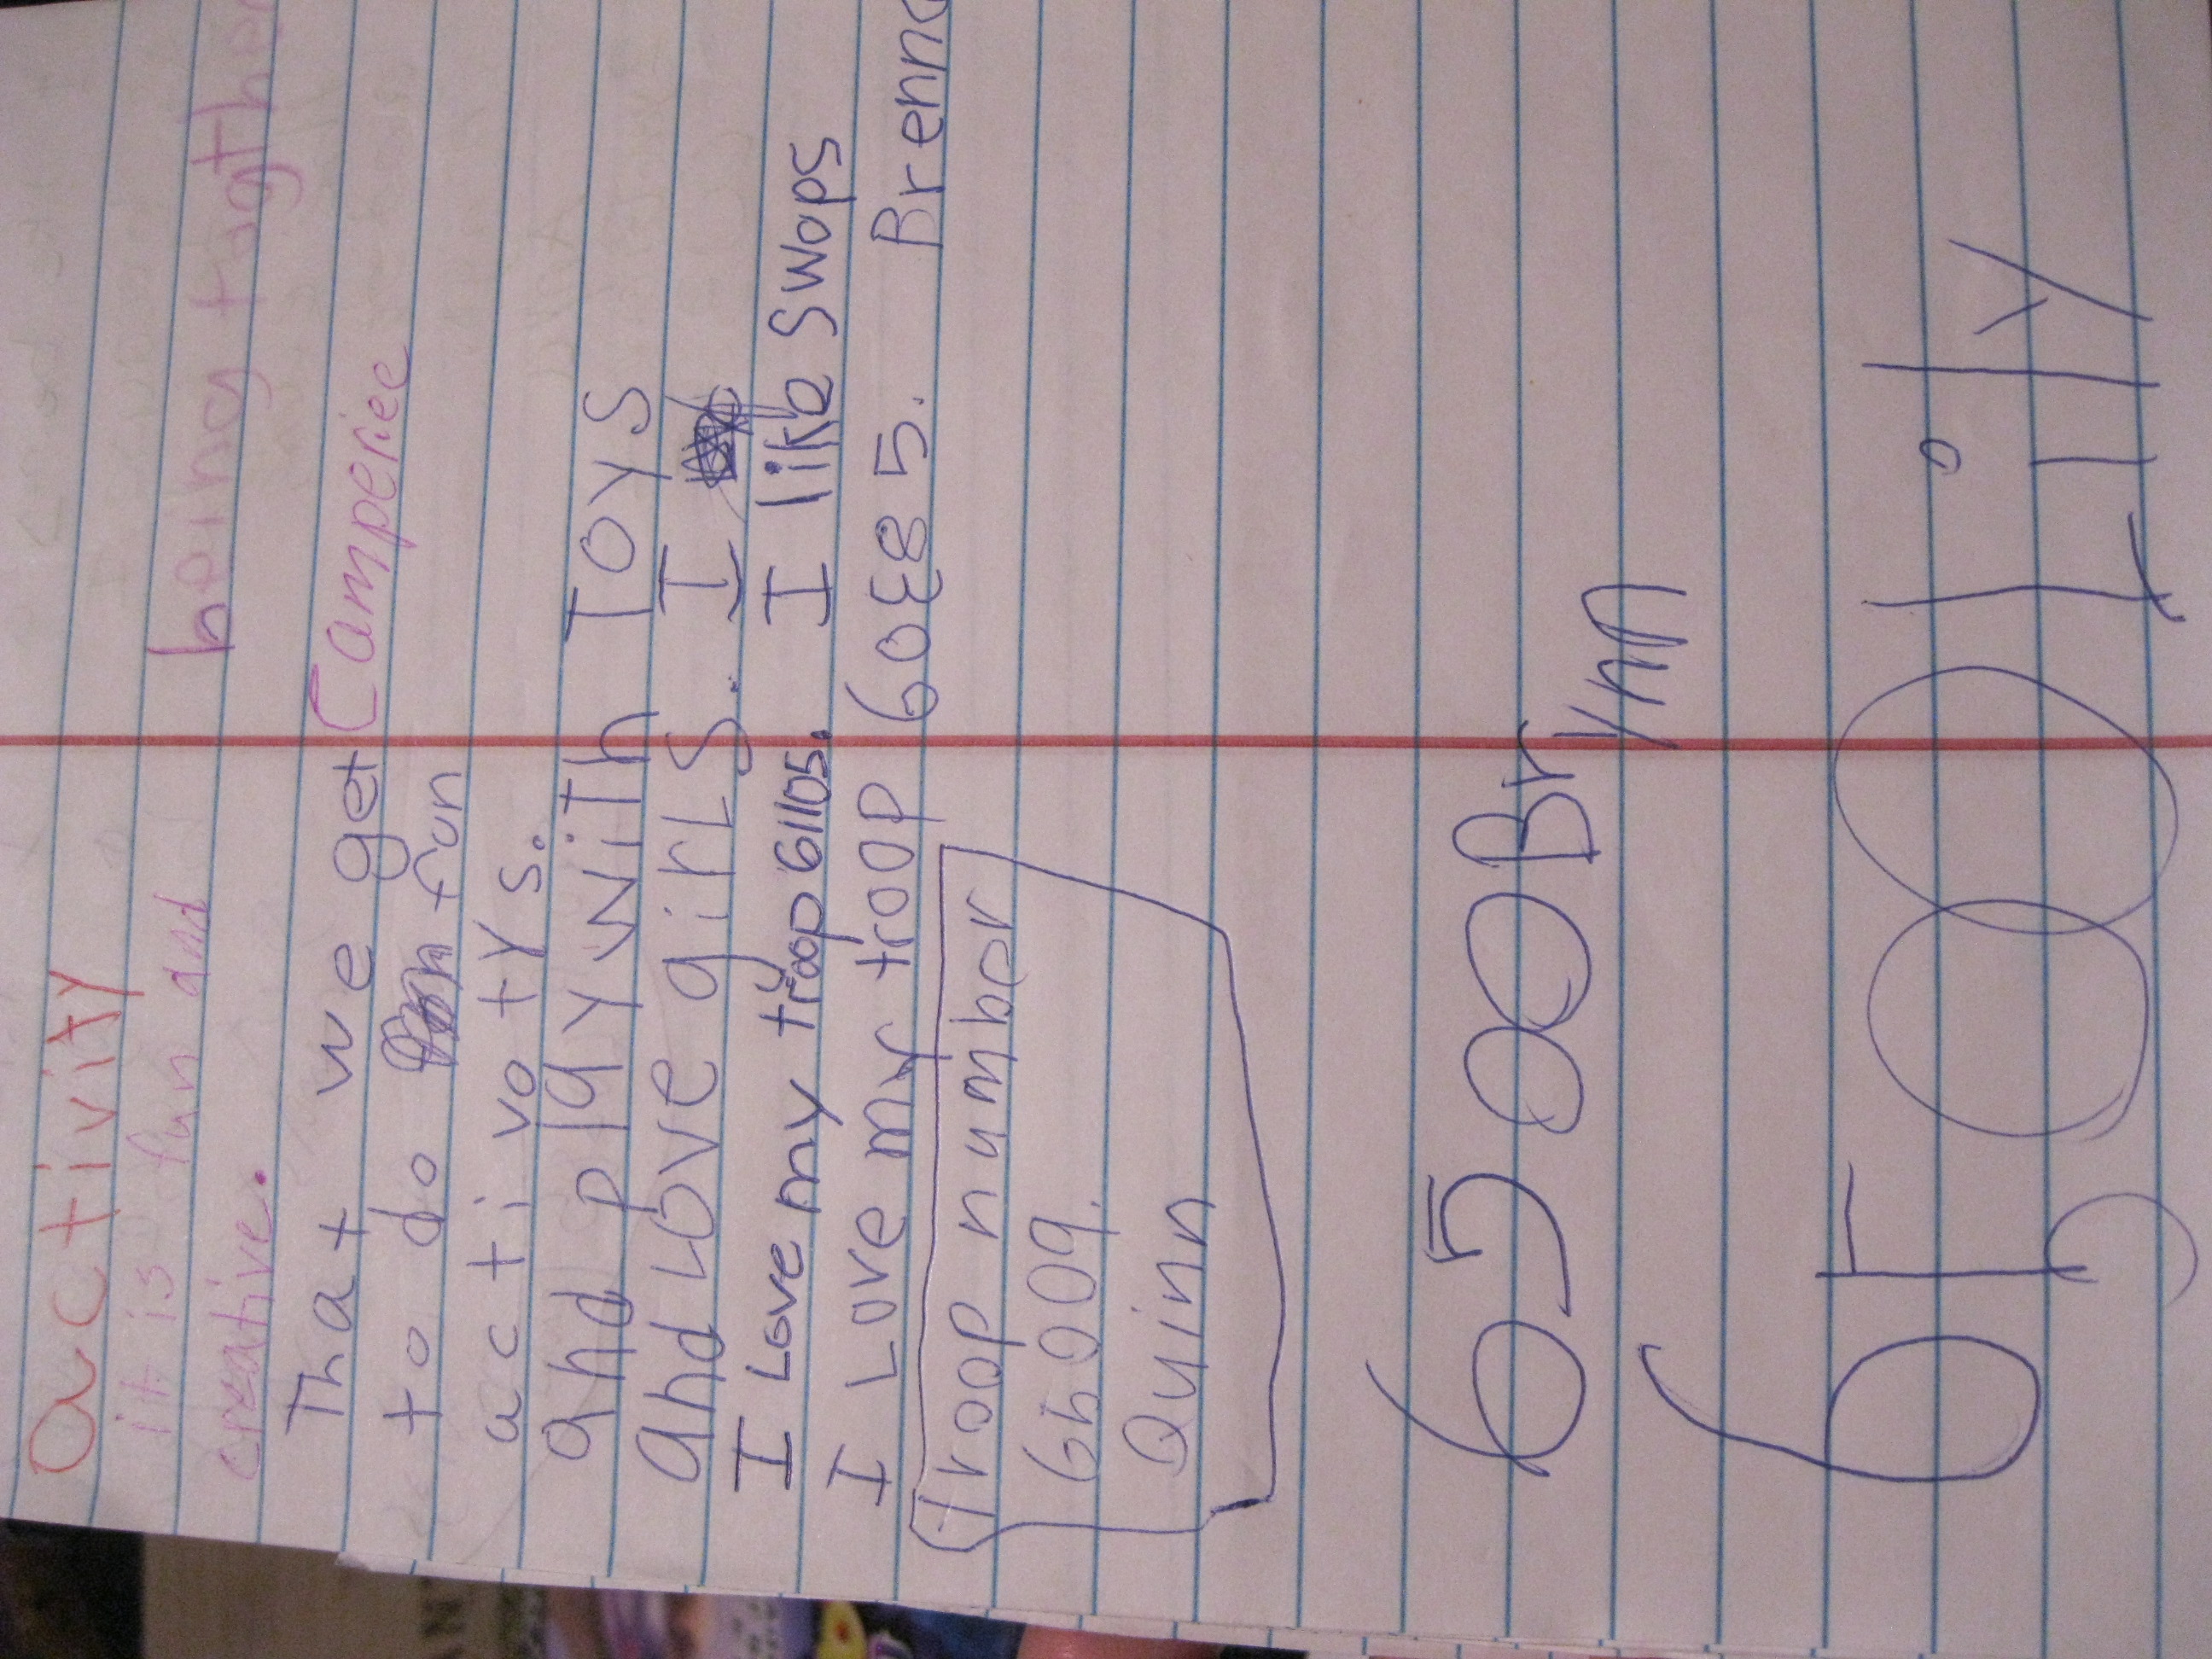 activity
it is fun and
creative. being togther
That we get Camperiee
to do fun
activotys.
and play with Toys
and Love girLs. I
I Love my troop 61105. I like Swops
I Love my troop 60385. Brenna
troop number
65009.
Quinn
6500 Brynn
6500 Lily